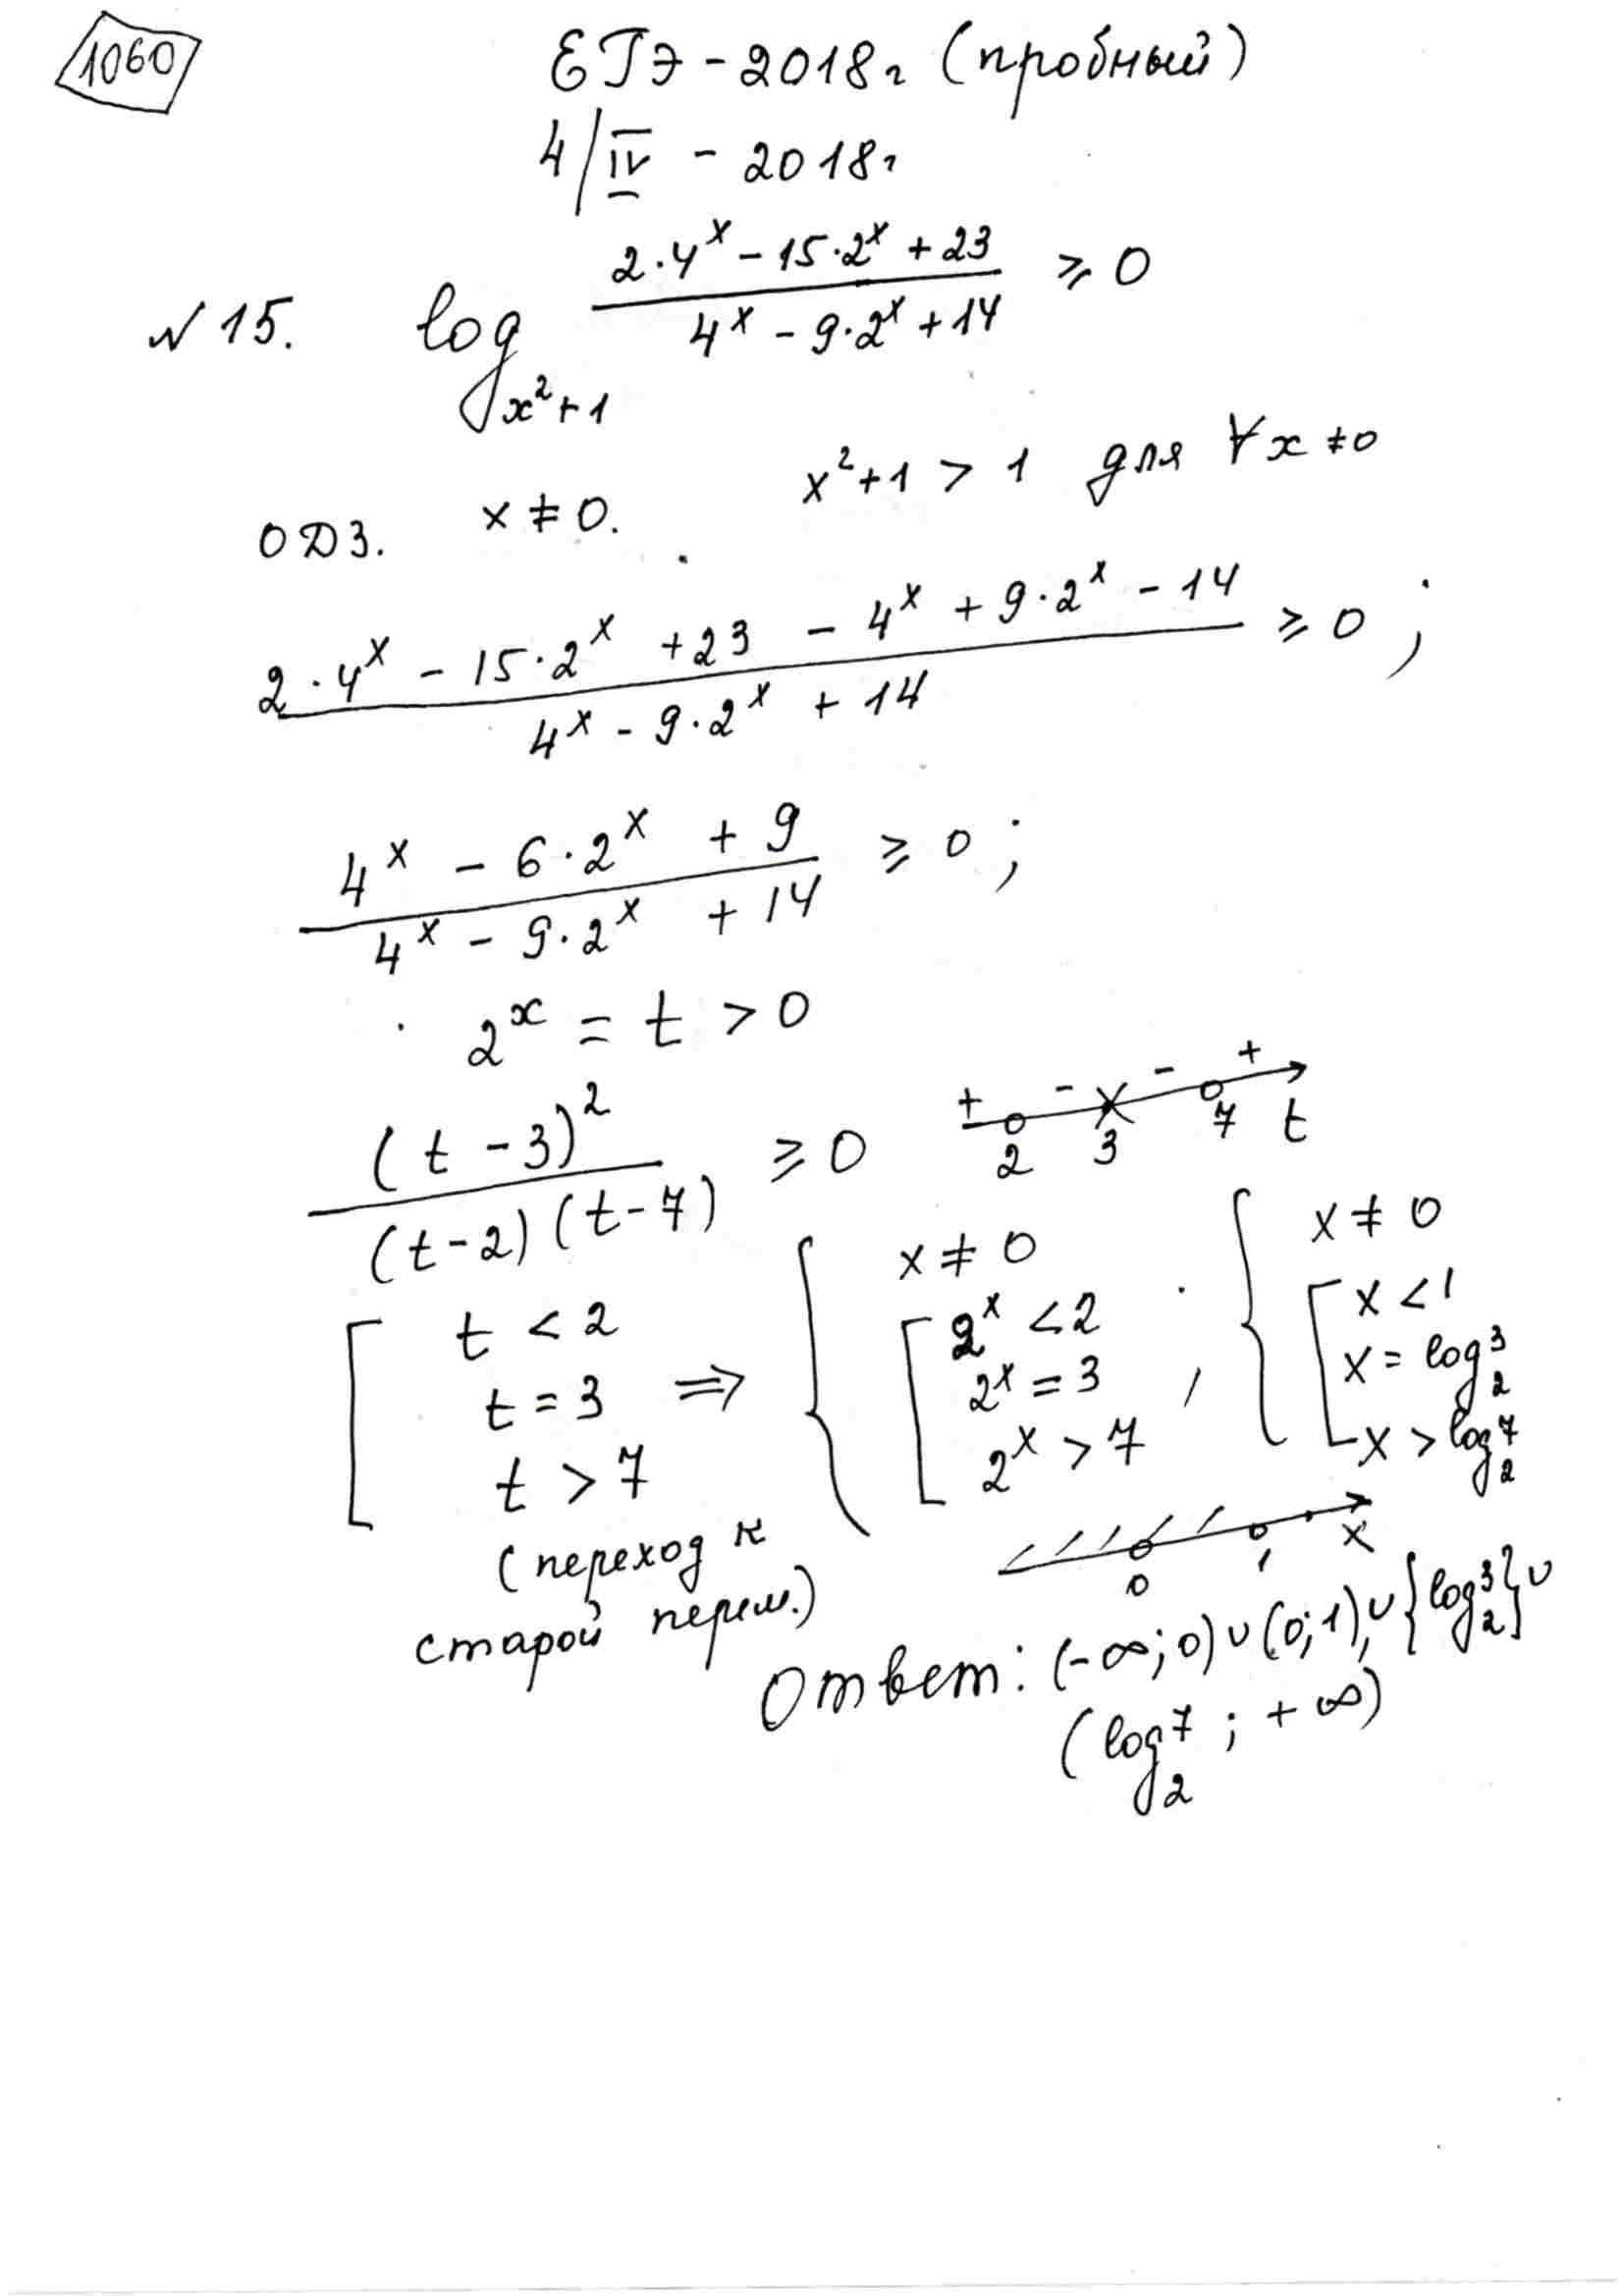 1060
ЕГЭ - 2018г (пробный)
4/IV - 2018г
N 15. log_{x²+1} (2·4^x - 15·2^x + 23)/(4^x - 9·2^x + 14) ≥ 0
x²+1 > 1 для ∀x ≠ 0
ОДЗ. x ≠ 0.
(2·4^x - 15·2^x + 23 - 4^x + 9·2^x - 14)/(4^x - 9·2^x + 14) ≥ 0 ;
(4^x - 6·2^x + 9)/(4^x - 9·2^x + 14) ≥ 0 ;
2^x = t > 0
+ - - +
2 3 7 t
(t - 3)²/((t-2)(t-7)) ≥ 0
[ t < 2
t = 3
t > 7
⇒
{ x ≠ 0
[ 2^x < 2
2^x = 3
2^x > 7
;
{ x ≠ 0
[ x < 1
x = log_2 3
x > log_2 7
(переход к
старой перем.)
0 1 x
Ответ: (-∞; 0) ∪ (0; 1) ∪ {log_2 3} ∪
(log_2 7 ; +∞)